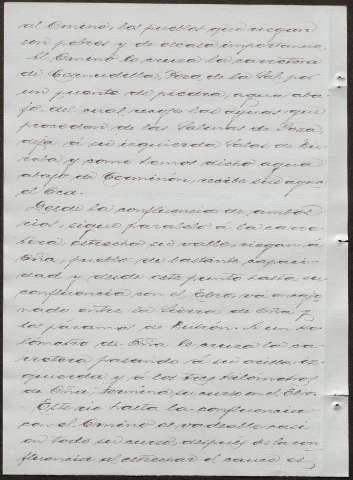 al Omino, los pueblos que riegan
son pobres y de escasa importancia.
Al Omino le cruza la carretera
de Cornudilla, Poza de la Sal por
un puente de piedra, agua aba-
jo del cual recoje las aguas que
proceden de las Salinas de Poza,
deja á su izquierda Salas de Bu-
reba y como hemos dicho agua
abajo de Terminón, recibe sus aguas
el Oca.
Desde la confluencia de ambos
rios, sigue paralelo á la carre-
tera, estrecha su valle, riega á
Oña, pueblo de bastante capaci-
dad y desde este punto hasta su
confluencia con el Ebro, vá encajo-
nado entre la Sierra de Oña y
los páramos de
lómetro de Oña le cruza la ca-
rretera pasando á su orilla iz-
quierda y á los tres kilómetros
de Oña termina su curso en el Ebro.
Este rio hasta la confluencia
con el Omino es vadeable casi
en todo su curso, después de la con-
fluencia al estrechar el cauce es